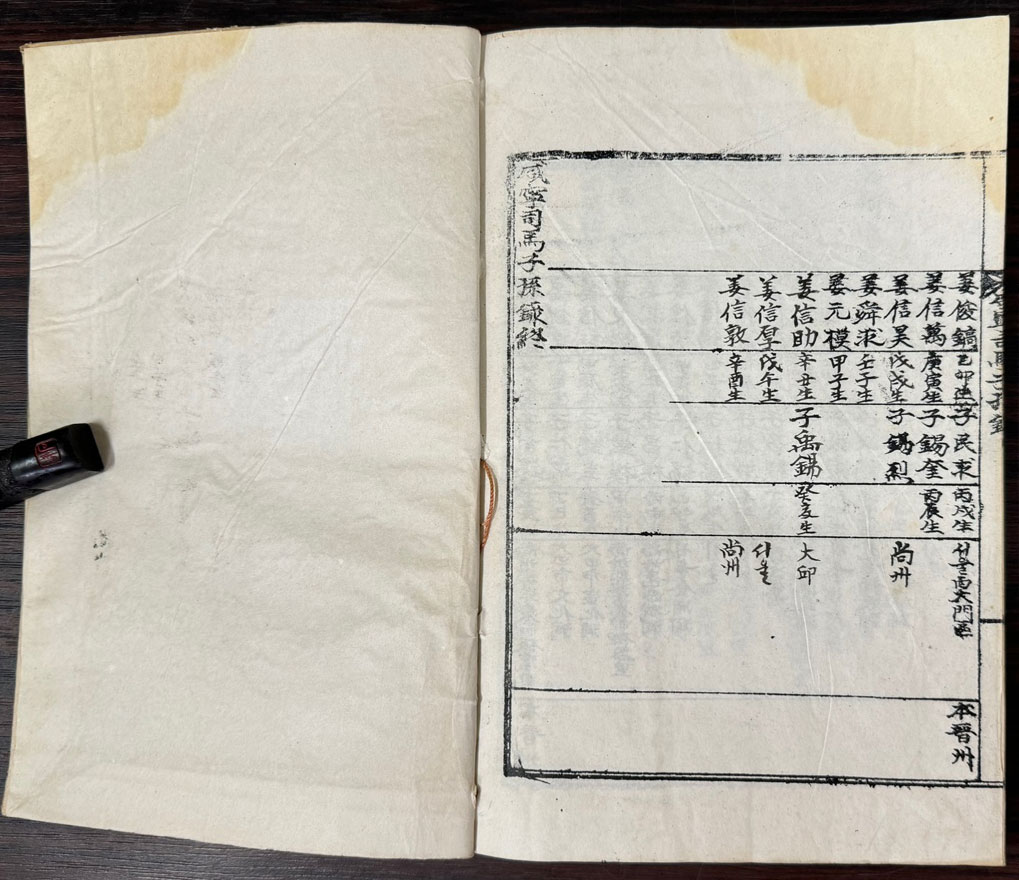 姜俊鎬 己卯生 子民求 丙戌生 서울西大門區 本晋州
姜信萬 庚寅生 子錫奎 丙辰生
姜信昊 戊戌生 子錫烈 尙州
姜舜求 壬子生
姜元模 甲子生
姜信助 辛丑生 子禹錫 癸亥生 大邱
姜信厚 戊午生 서울
姜信敦 辛酉生 尙州
咸寧司馬子孫錄終